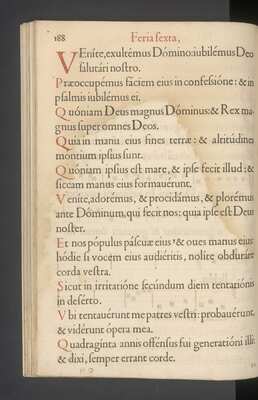 188 Feria sexta,
VEníte, exultémus Dómino: iubilémus Deo
salutári nostro.
Præoccupémus fáciem eius in confessióne: & in
psalmis iubilémus ei.
Quóniam Deus magnus Dóminus: & Rex ma-
gnus super omnes Deos.
Quia in manu eius fines terræ: & altitúdines
montium ipsíus sunt.
Quóniam ipsíus est mare, & ipse fecit illud: &
siccam manus eius formavérunt.
Veníte, adorémus, & procidámus, & plorémus
ante Dóminum, qui fecit nos: quia ipse est Deus
noster.
Et nos pópulus páscuæ eius, & oues manus eius:
hódie si vocem eius audiéritis, nolíte obduráre
corda vestra.
Sicut in irritatióne secúndum diem tentatiónis
in desérto.
Vbi tentauérunt me patres vestri: probauérunt,
& vidérunt ópera mea.
Quadragínta annis offénsus fui generatióni illi:
& dixi, semper errant corde.